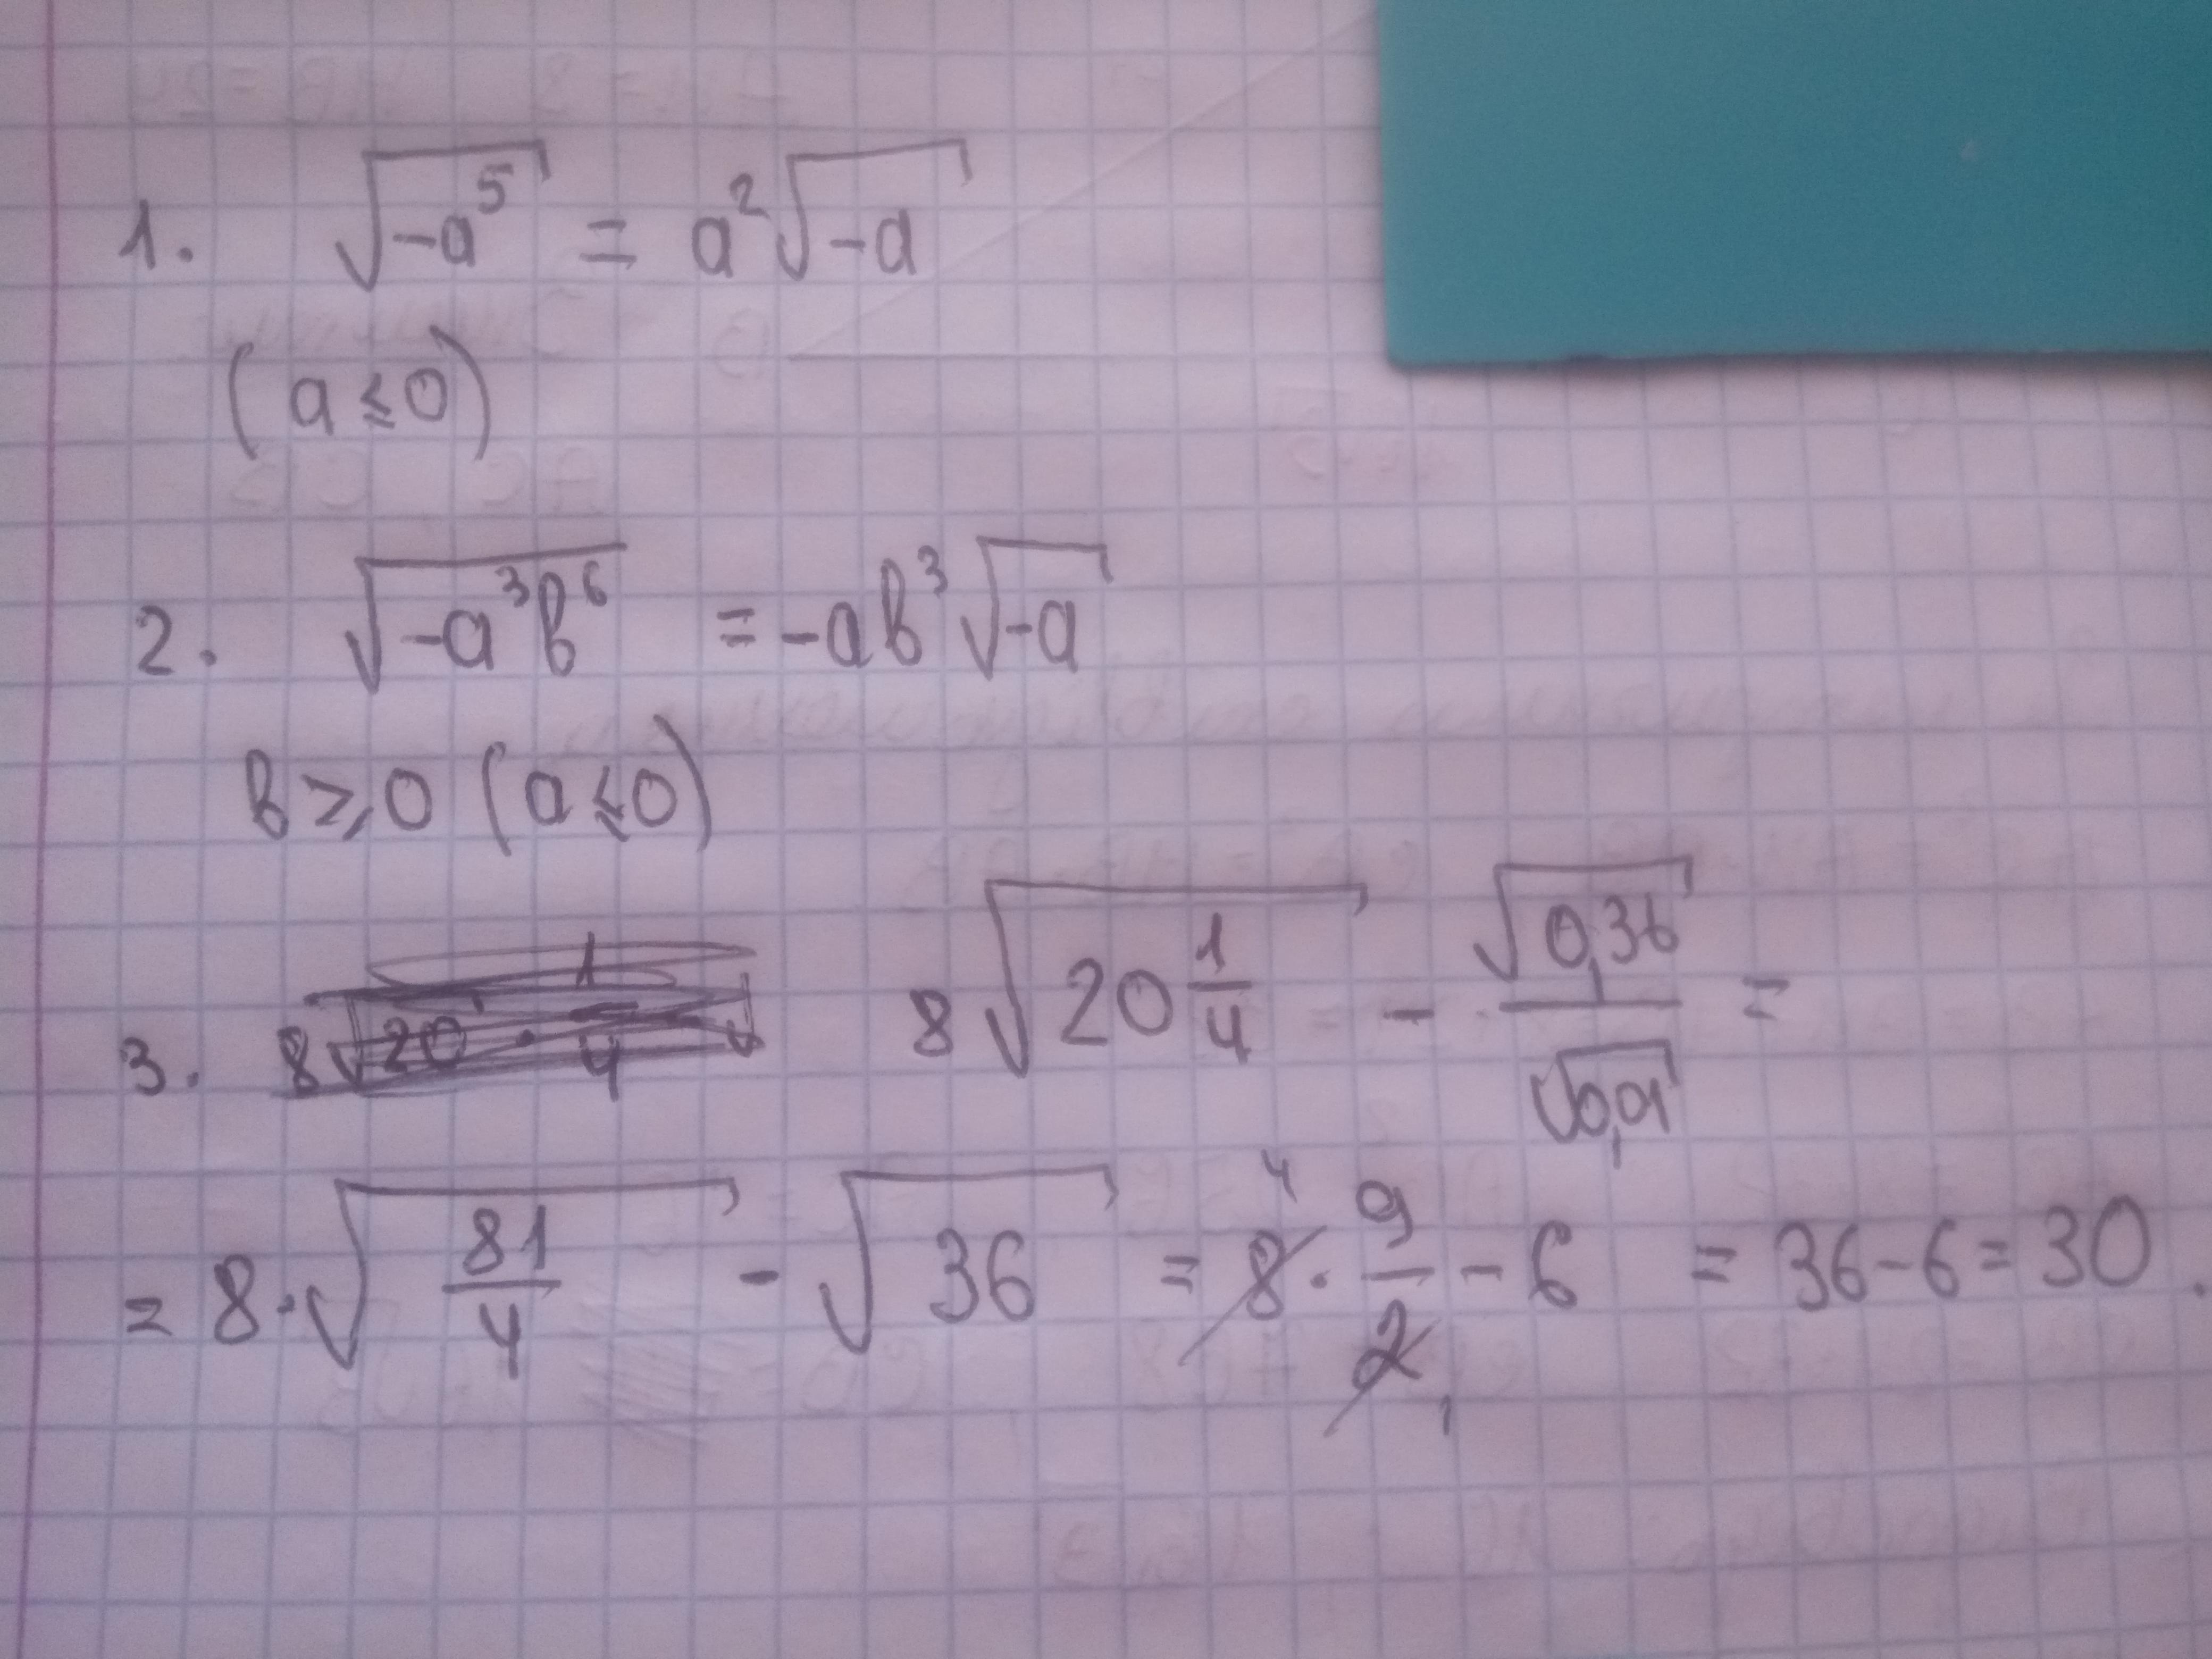 1. √(-a⁵) = a²√(-a)
(a ≤ 0)
2. √(-a³b⁶) = -ab³√(-a)
b ≥ 0 (a ≤ 0)
3. 8√(20 · 1/4) 8√(20 1/4) - √0,36/√0,01 =
= 8·√(81/4) - √36 = 8 4 · 9/2 1 - 6 = 36-6=30.